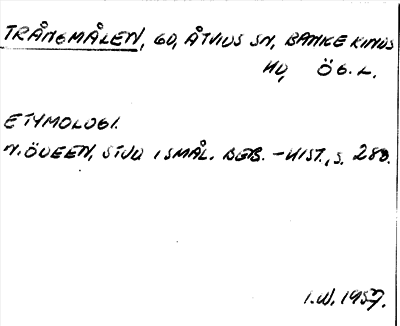 TRÅNGMÅLEN, GD, ÅTVIDS SN, BANKEKINDS
HD, ÖG. L.
ETYMOLOGI.
N. ÖDEEN, STUD I SMÅL. BEB. - HIST., S. 280.
I.W. 1957.